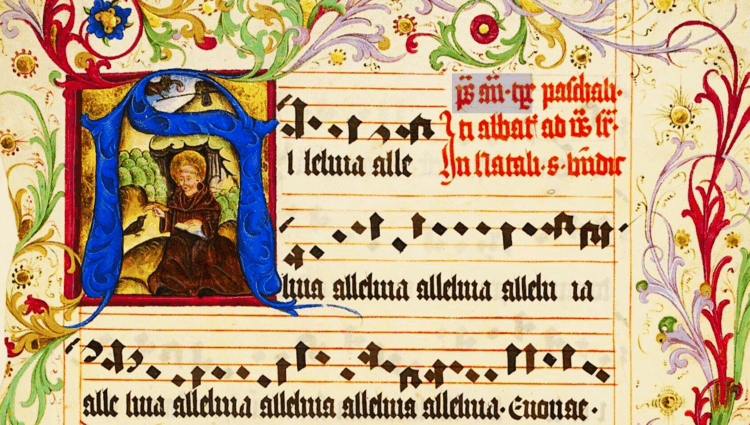 paschali·
In albat ad
A l leluia alle In Natali · s · bndic
luia alleluia alleluia allelu ia
alle luia alleluia alleluia alleluia alleluia · Euouae ·